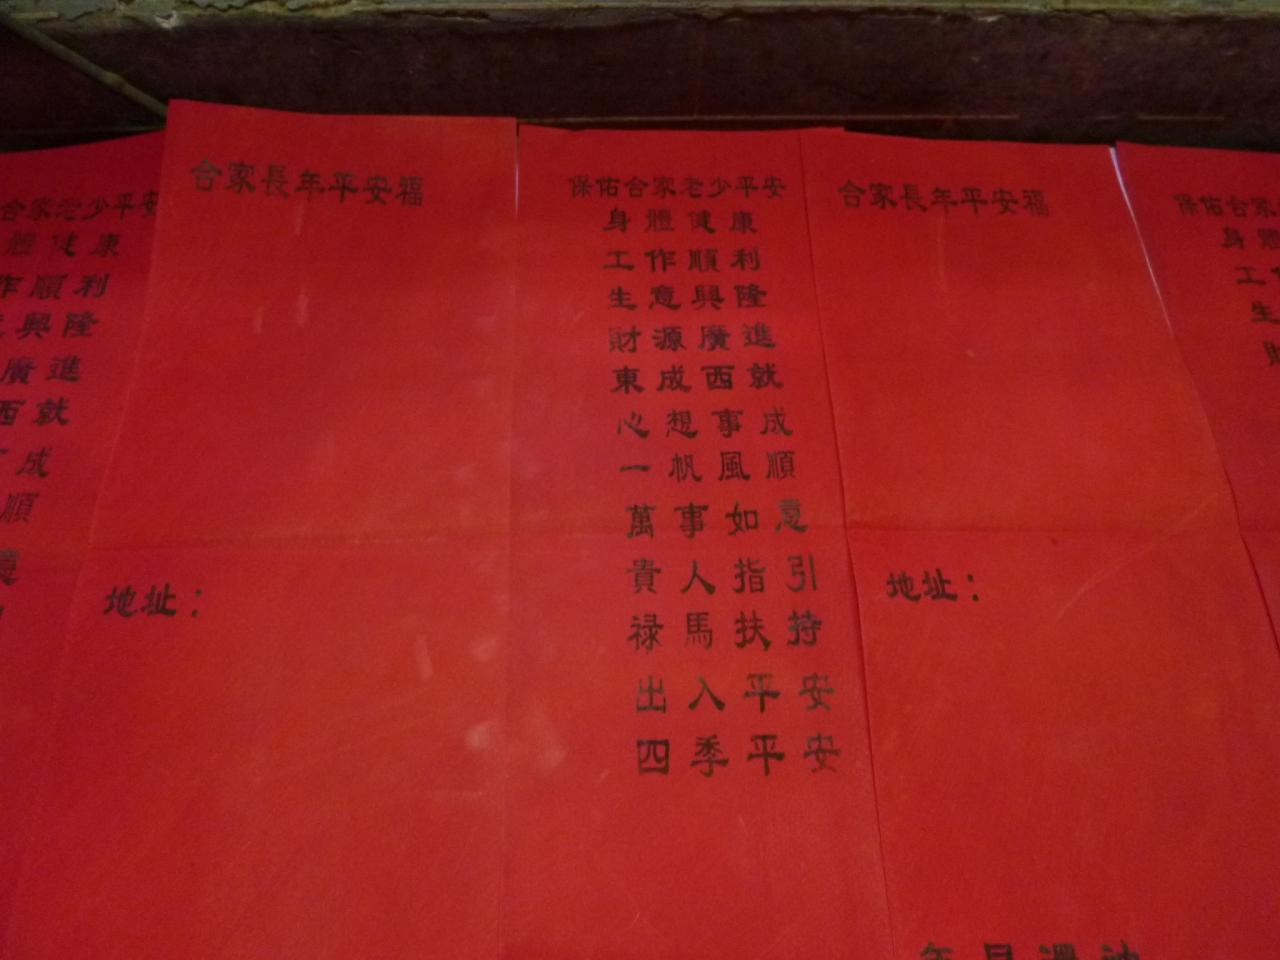 合家老少平安
體健康
作順利
興隆
廣進
西就
成
順
意
合家長年平安福
地址：
保佑合家老少平安
身體健康
工作順利
生意興隆
財源廣進
東成西就
心想事成
一帆風順
萬事如意
貴人指引
祿馬扶持
出入平安
四季平安
合家長年平安福
地址：
年月還神
保佑合家
身體
工作
生
財